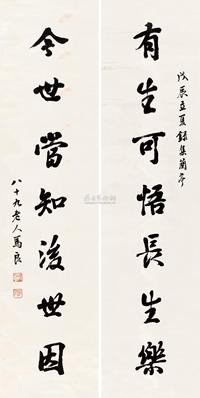 戊辰立夏錄集蘭亭
有生可悟長生樂
今世當知後世因
八十九老人馬良